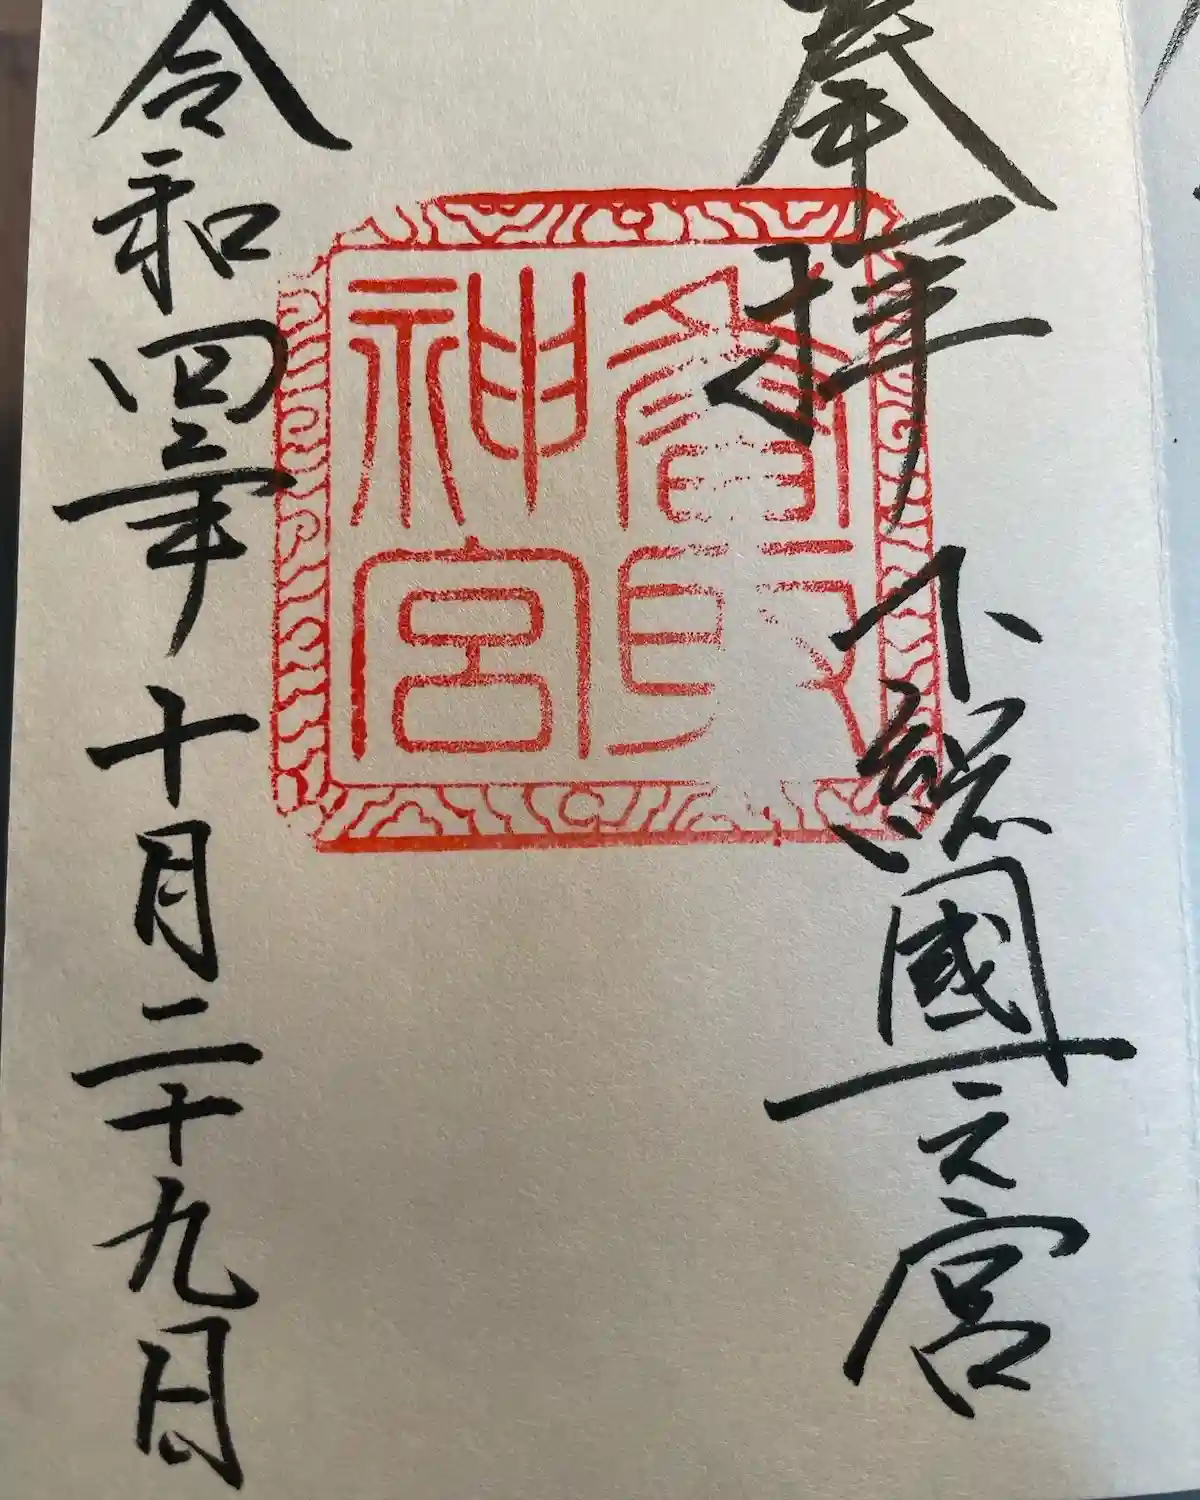 奉拝
下総國一之宮
香取
神宮
令和四年十月二十九日